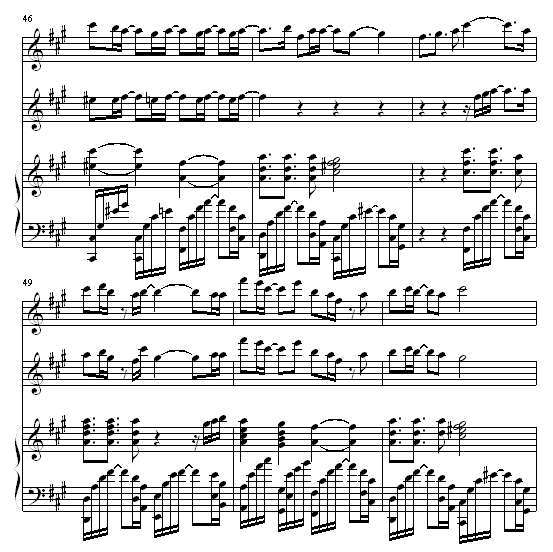 46
49